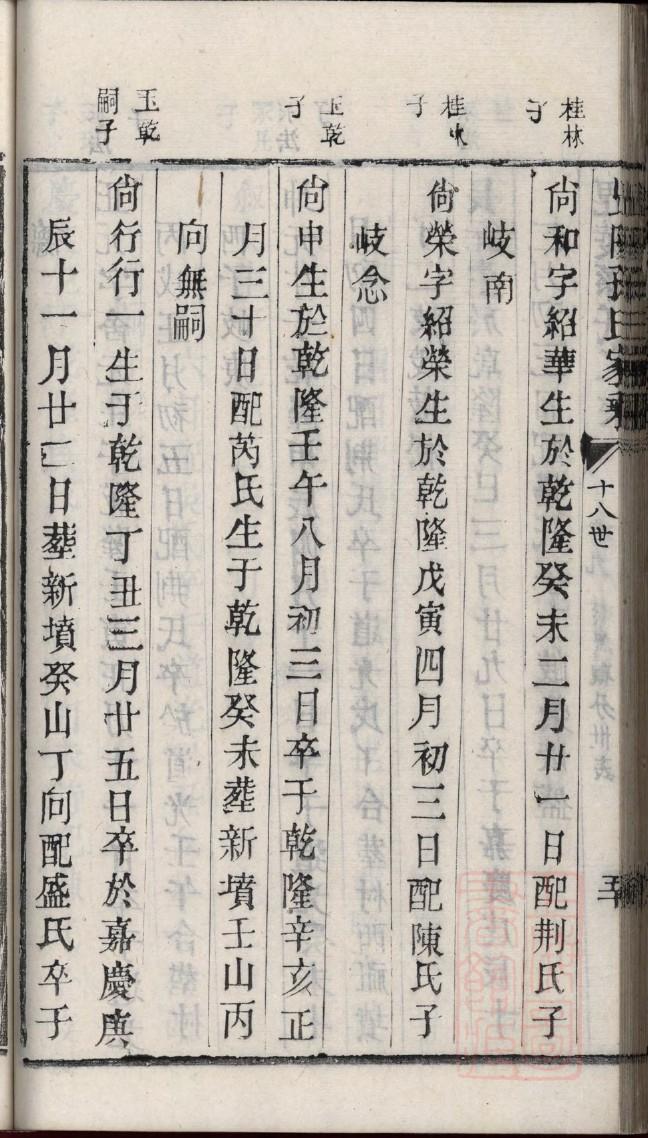 十八世
桂林子
尙和字紹華生於乾隆癸未二月廿一日配荆氏子
岐南
桂
子
尙榮字紹榮生於乾隆戊寅四月初三日配陳氏子
岐念
玉乾子
尙申生於乾隆壬午八月初三日卒于乾隆辛亥正
月三十日配芮氏生于乾隆癸未塟新墳壬山丙
向無嗣
玉乾嗣子
尙行行一生于乾隆丁丑三月廿五日卒於嘉慶庚
辰十一月廿二日塟新墳癸山丁向配盛氏卒于